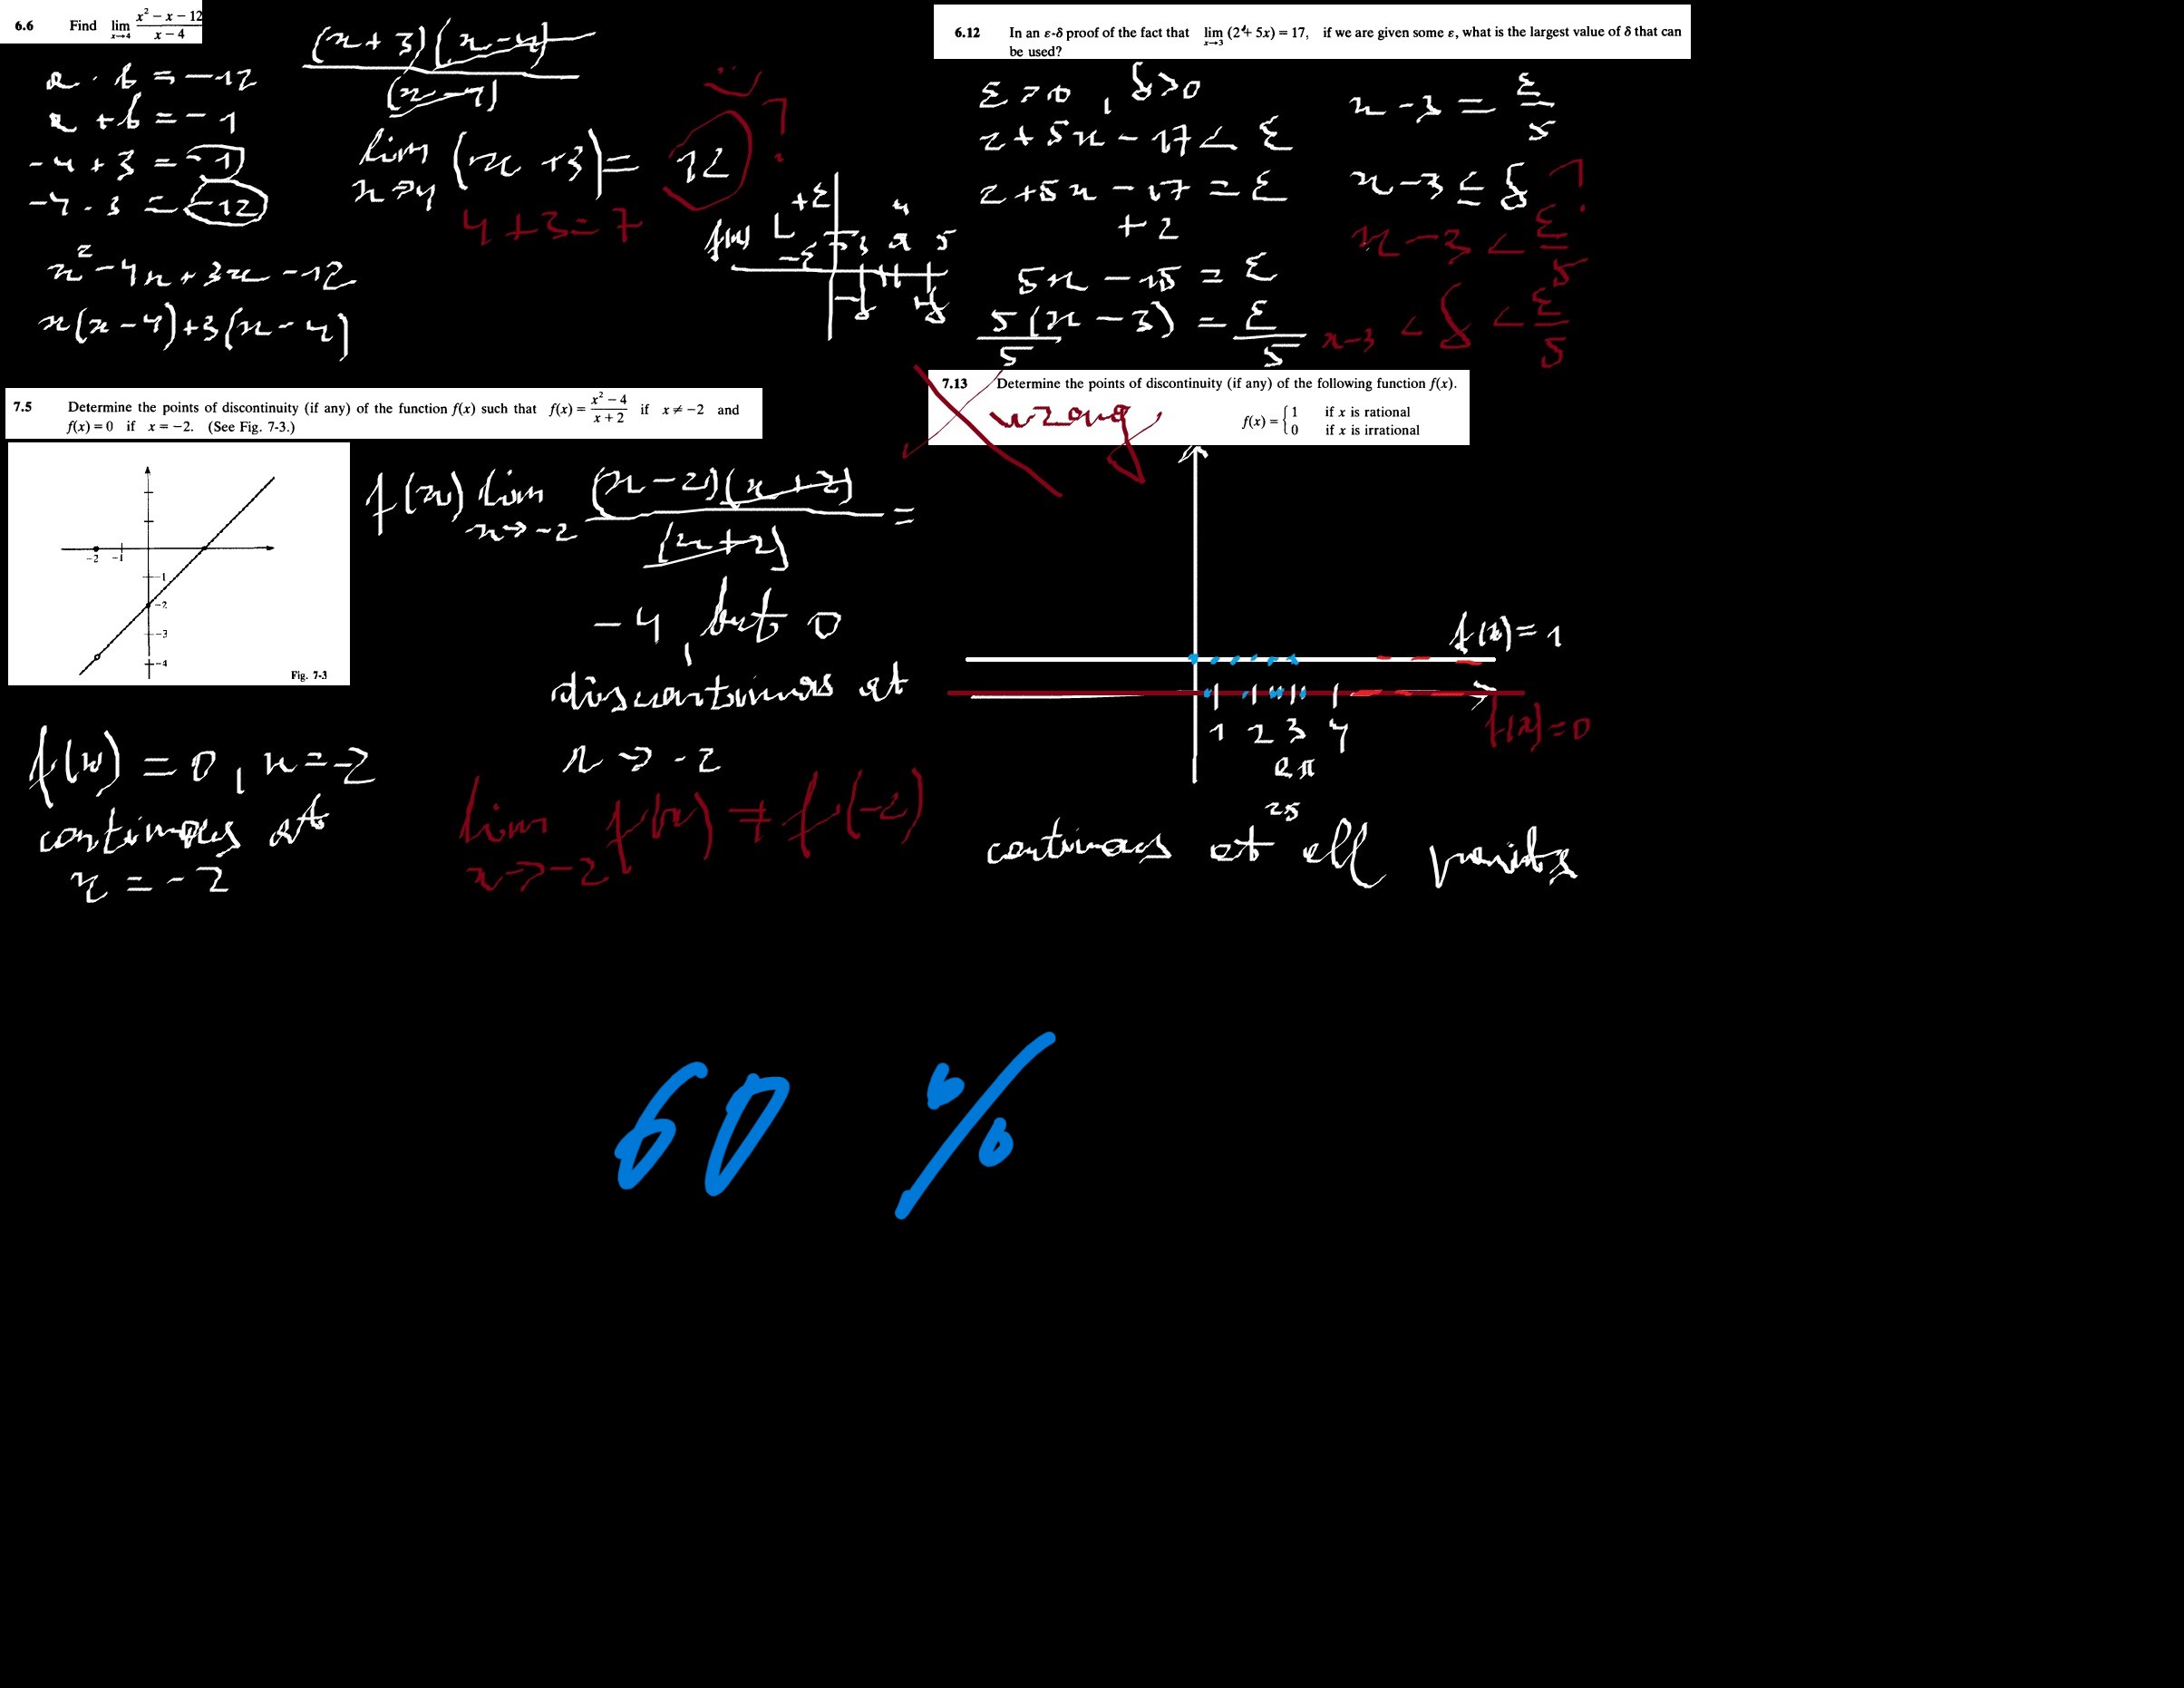 6.6 Find lim x→4 x² − x − 12 / x − 4
a · b = −12
a + b = −1
−4 + 3 = −1
−4 · 3 = −12
x² − 4x + 3x − 12
x(x − 4) + 3(x − 4)
(x + 3)(x − 4)
(x − 4)
lim x→4 (x + 3) = 12 ?
4 + 3 = 7
+ε
f(x) L
−ε
3 4 5
a
−δ +δ
6.12 In an ε-δ proof of the fact that lim x→3 (2 + 5x) = 17, if we are given some ε, what is the largest value of δ that can
be used?
ε > 0, δ > 0
2 + 5x − 17 < ε
2 + 5x − 17 = ε
+ 2
5x − 15 = ε
5(x − 3) / 5 = ε / 5
x − 3 = ε / 5
x − 3 ≤ δ ?
x − 3 < ε / 5
x − 3 < δ < ε / 5
7.5 Determine the points of discontinuity (if any) of the function f(x) such that f(x) = x² − 4 / x + 2 if x ≠ −2 and
f(x) = 0 if x = −2. (See Fig. 7-3.)
−2 −1
−1
−2
−3
−4
Fig. 7-3
f(x) lim x→−2 (x − 2)(x + 2) / (x + 2) =
−4, but 0
discontinuos at
x → −2
lim x→−2 f(x) ≠ f(−2)
f(x) = 0, x = −2
continuous at
x = −2
7.13 Determine the points of discontinuity (if any) of the following function f(x).
f(x) = { 1 if x is rational
0 if x is irrational
wrong
f(x) = 1
f(x) = 0
1 2 3 4
e π
2.5
continuous at all points
60 %